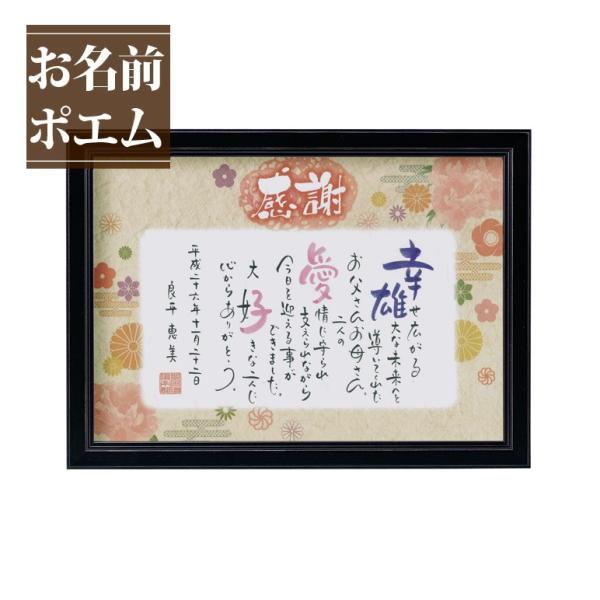 お名前
ポエム
感謝
幸せ広がる
雄大な未来へと
導いてくれた
お父さんお母さん。
二人の
愛情に守られ
支えられながら
今日を迎える事が
できました。
大好きな二人に
心からありがとう。
平成二十六年十一月二十二日
良平 恵美